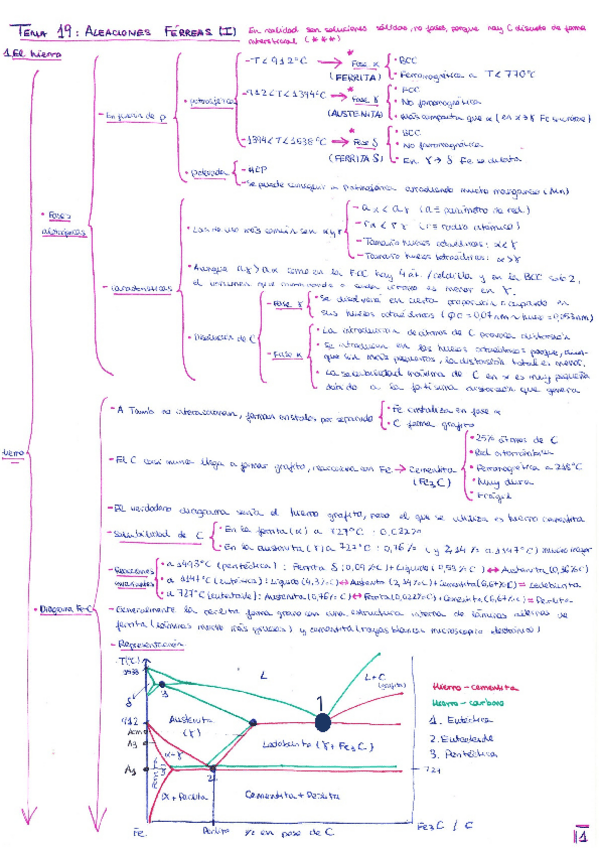 TEMA 19: ALEACIONES FÉRREAS (I)
En realidad son soluciones sólidas, no fases, porque hay C disuelto de forma
intersticial (***)
1. El hierro
hierro
• Fases
alotrópicas
- En función de p
• patmosférica
- T < 912°C → * Fase α (FERRITA)
• BCC
• Ferromagnética a T < 770°C
- 912 < T < 1394°C → * Fase γ (AUSTENITA)
• FCC
• No ferromagnética
• Más compacta que α (en α→γ Fe se contrae)
- 1394 < T < 1538°C → * Fase δ (FERRITA δ)
• BCC
• No ferromagnética
• En γ → δ Fe se dilata
• pelevada
- HCP
- Se puede conseguir a patmosférica añadiendo mucho manganeso (Mn)
- Características
• Las de uso más común son α y γ
- aα < aγ (a = parámetro de red)
- rα < rγ (r = radio atómico)
- Tamaño huecos octaédricos: α < γ
- Tamaño huecos tetraédricos: α > γ
• Aunque aγ > aα como en la FCC hay 4 át./celdilla y en la BCC solo 2,
el volumen que corresponde a cada átomo es menor en γ.
• Disolución de C
- Fase γ
• Se disolverá en cierta proporción ocupando en
sus huecos octaédricos
- Fase α
• La introducción de átomos de C provoca distorsión
• Se introducen en los huecos octaédricos porque, aun-
que son más pequeños, la distorsión total es menor.
• La solubilidad máxima de C en α es muy pequeña
debido a la fortísima distorsión que genera
• Diagrama Fe-C
- A Tamb no interaccionan, forman cristales por separado
• Fe cristaliza en fase α
• C forma grafito
- El C casi nunca llega a formar grafito, reacciona con Fe → Cementita
(Fe3C)
• 25% átomos de C
• Red ortorrómbica
• Ferromagnética a 218°C
• Muy dura
• Frágil
- El verdadero diagrama sería el hierro grafito, pero el que se utiliza es hierro cementita
- Solubilidad de C
• En la ferrita (α) a 727°C: 0,022%
• En la austenita (γ) a 727°C: 0,76% (y 2,14% a 1147°C) mucho mayor
- Reacciones
invariantes
• a 1493°C (peritéctica): Ferrita δ: 0,09% + Líquido (0,53%C) ↔ Austenita (0,16%C)
• a 1147°C (eutéctica): Líquido (4,3%C) ↔ Austenita (2,14%C) + Cementita (6,67%C) = Ledeburita
• a 727°C (eutectoide): Austenita (0,76%C) ↔ Ferrita (0,022%C) + Cementita (6,67%C) = Perlita
- Generalmente la perlita forma grano con una estructura interna de láminas alternas de
ferrita (láminas mucho más gruesas) y cementita (rayas blancas microscopio electrónico)
- Representación
T(°C)
1538
δ
3
L
1
L+C
(grafito)
Hierro-cementita
Hierro-carbono
912
Austenita
(γ)
Acm
A3
Ledeburita (γ + Fe3C)
1. Eutéctica
2. Eutectoide
3. Peritéctica
α+γ
A1
2
727
α + Perlita
Cementita + Perlita
Fe
Perlita
% en peso de C
Fe3C / C
1